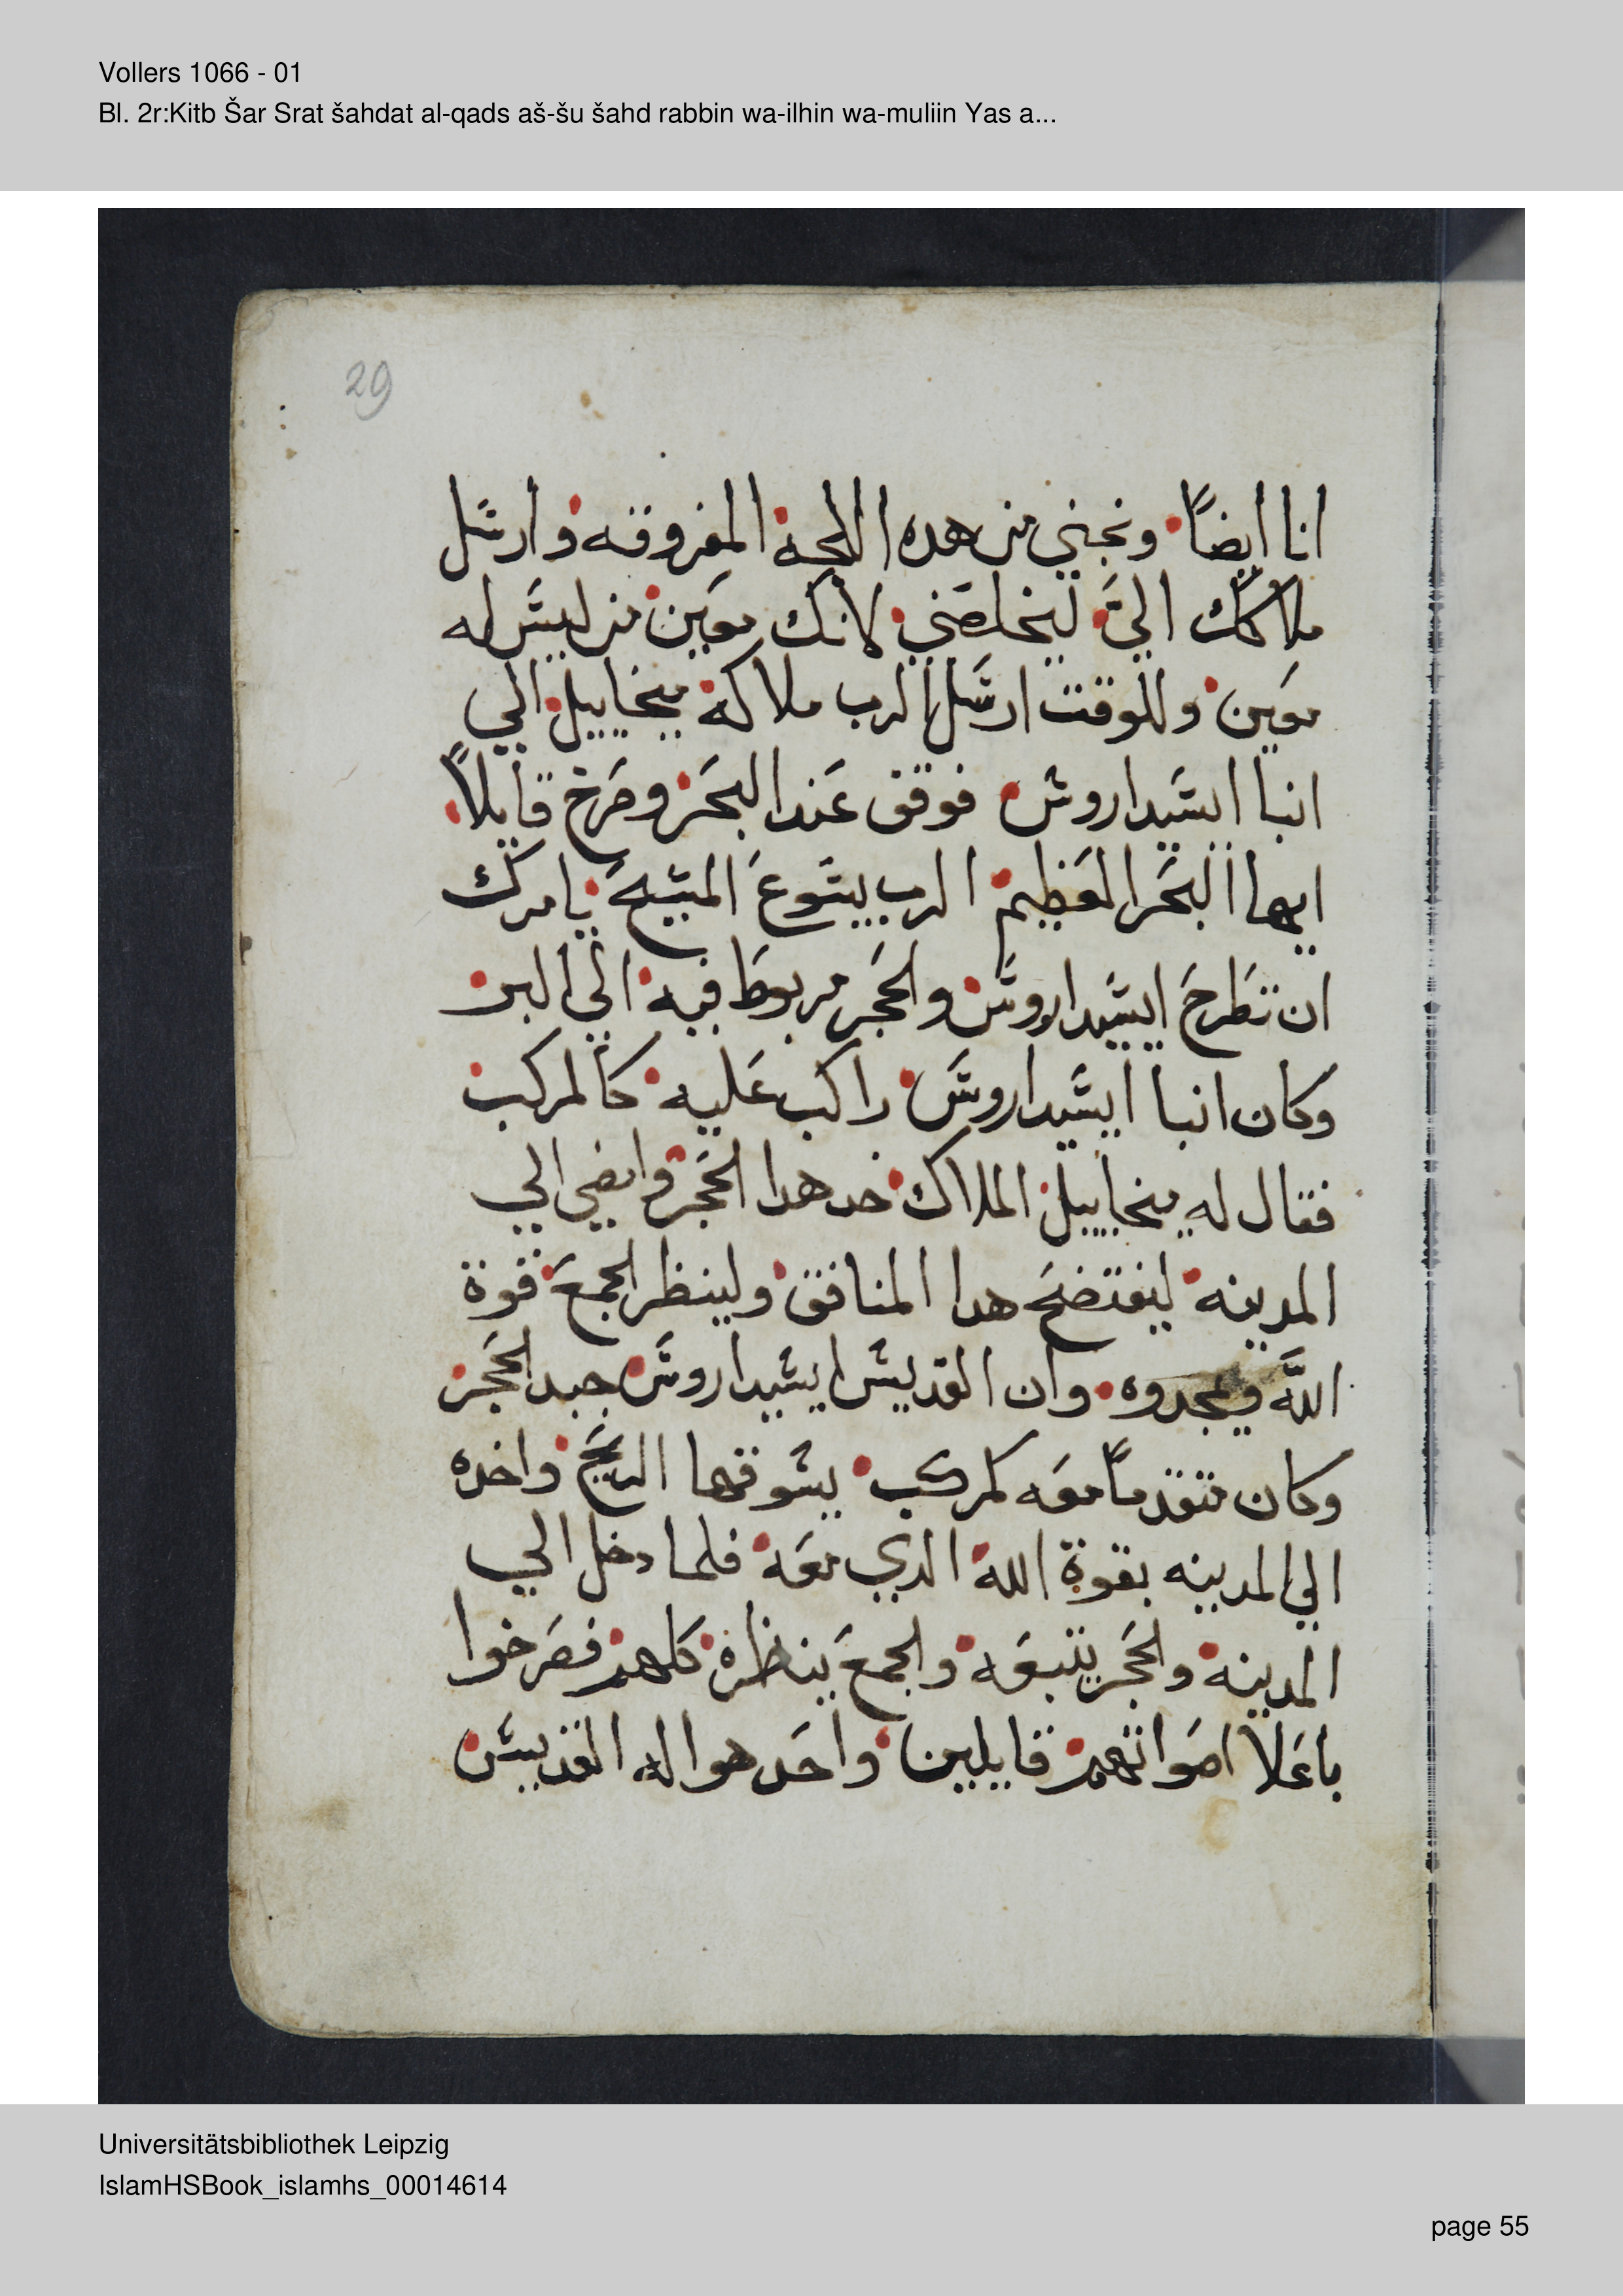 Vollers 1066 - 01
Bl. 2r:Kitb Šar Srat šahdat al-qads aš-šu šahd rabbin wa-ilhin wa-muliin Yas a...
29
انا ايضاً ونجني من هده اللجة المغروقه وارسل
ملاكك الي ليخلصني لانك معين من ليس له
معين وللوقت ارسل الرب ملاكه ميخاييل الي
انبا ايسيداروس فوقف عند البحر وصرخ قايلاً
ايها البحر العظيم الرب يسوع المسيح يامرك
ان تطرح ايسيداروس والحجر مربوط فيه الي البر
وكان انبا ايسيداروس راكب عليه كالمركب
فقال له ميخاييل الملاك خد هدا الحجر وامضي الي
المدينه ليفتضح هدا المنافق ولينظر الجمع قوة
الله ويمجدوه وان القديس ايسيداروس جبد الحجر
وكان متقدماً معه كمركب يسوقها الريح واخده
الي المدينه بقوة الله الدي معه فلما دخل الي
المدينه والحجر يتبعه والجمع ينظره كلهم فصرخوا
باعلا اصواتهم قايلين واحد هو اله القديسين
Universitätsbibliothek Leipzig
IslamHSBook_islamhs_00014614
page 55